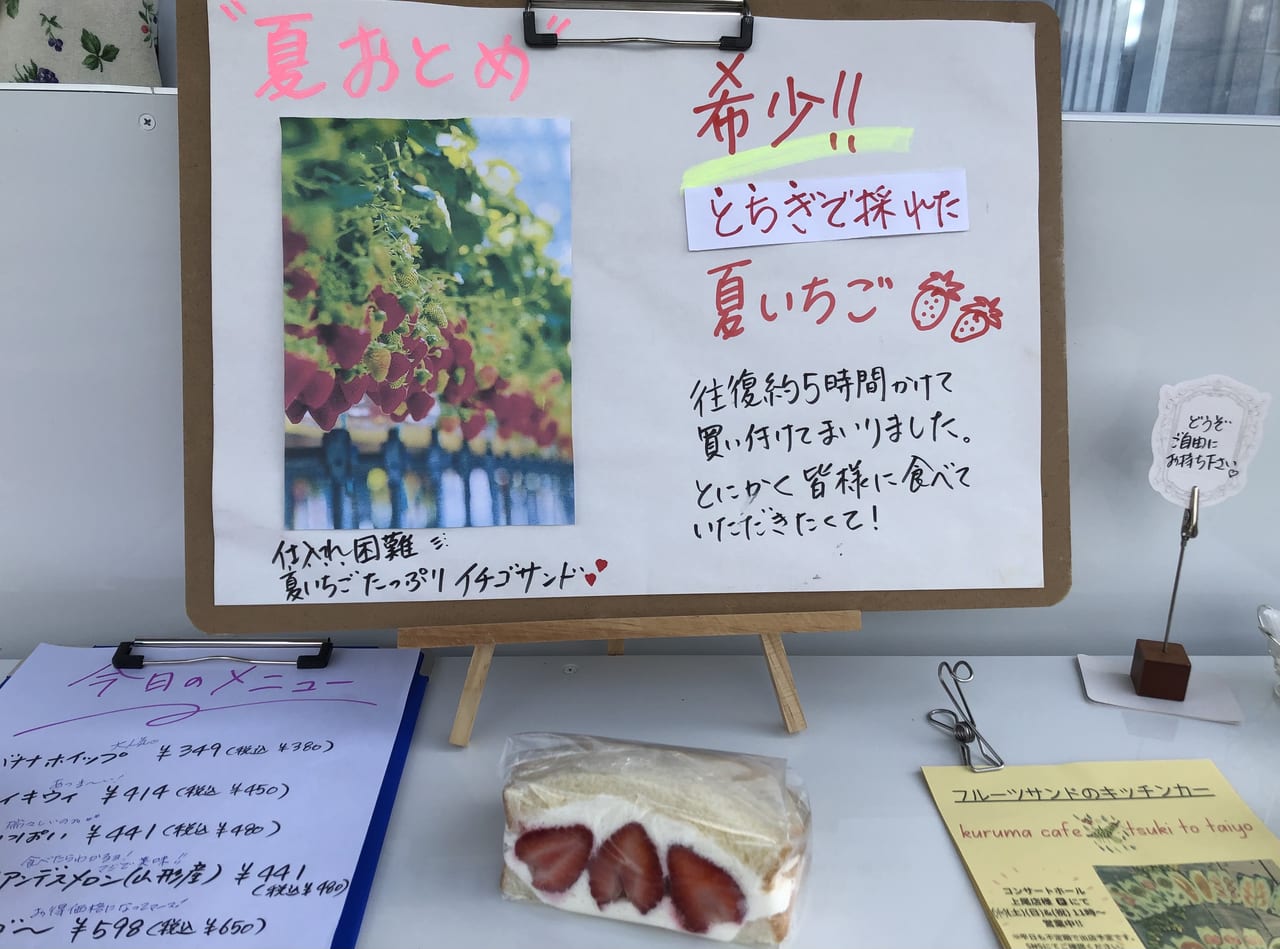 "夏おとめ"
希少!!
とちぎで採れた
夏いちご
往復約5時間かけて
買い付けてまいりました。
とにかく皆様に食べて
いただきたくて!
仕入れ困難
夏いちごたっぷりイチゴサンド
どうぞ
ご自由に
お持ち下さい
今日のメニュー
大人気の
バナナホイップ ¥349(税込 ¥380)
イキウィ ¥414(税込 ¥450)
っぱい ¥441(税込 ¥480)
食べたらわかるョ!
マジで美味!!
アンデスメロン(山形産) ¥441
(税込 ¥480)
お得価格になってマース!
¥598(税込 ¥650)
フルーツサンドのキッチンカー
kuruma cafe tsuki to taiyo
コンサートホール
上尾店様 P にて
(土)&(祝)11時〜
営業中!!